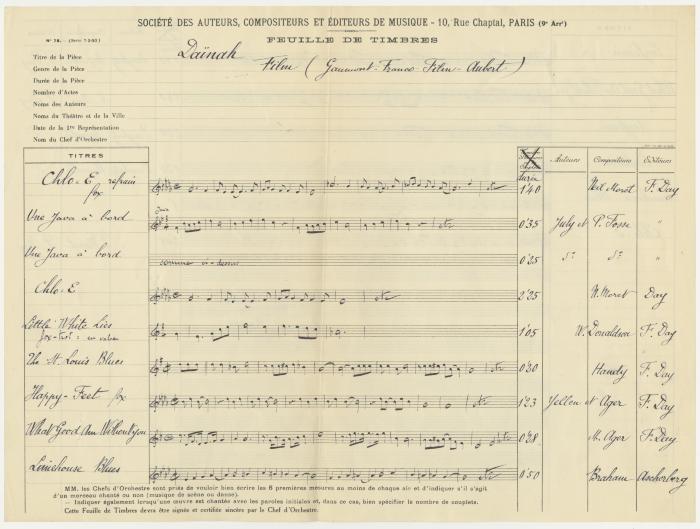 SOCIÉTÉ DES AUTEURS, COMPOSITEURS ET ÉDITEURS DE MUSIQUE - 10, Rue Chaptal, PARIS (9e Arrt)
FEUILLE DE TIMBRES
Titre de la Pièce Daïnah
Genre de la Pièce Film (Gaumont-Franco-Film-Aubert)
Durée de la Pièce
Nombre d'Actes
Noms des Auteurs
Noms du Théâtre et de la Ville
Date de la 1re Représentation
Nom du Chef d'Orchestre
TITRES durée Auteurs Compositeurs Editeurs
Chlo-E refrain fox 1'40 Neil Moret F. Day
Une Java à bord 0'35 July et P. Fosse "
Une Java à bord comme ci-dessus 0'25 do do "
Chlo-E etc 2'25 N. Moret Day
Little White Lies
fox-trot: en valse 1'05 W. Donaldson F. Day
The St. Louis Blues etc 0'30 Handy F. Day
Happy-Feet fox etc 1'23 Yellen et Ager F. Day
What Good Am I Without You etc 0'28 M. Ager F. Day
Limehouse Blues 0'50 Braham Ascherberg
MM. les Chefs d'Orchestre sont priés de vouloir bien écrire les 6 premières mesures au moins de chaque air et d'indiquer s'il s'agit
d'un morceau chanté ou non (musique de scène ou danse).
— Indiquer également lorsqu'une œuvre est chantée avec les paroles initiales et, dans ce cas, bien spécifier le nombre de couplets.
Cette Feuille de Timbres devra être signée et certifiée sincère par le Chef d'Orchestre.